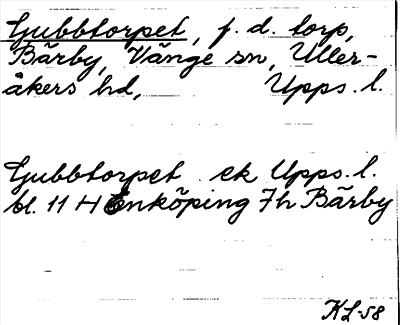 Gubbtorpet, f. d. torp,
Bärby, Vänge sn, Uller-
åkers hd, Upps. l.
Gubbtorpet ek Upps. l.
bl. 11 H Enköping 7h Bärby
KL-58